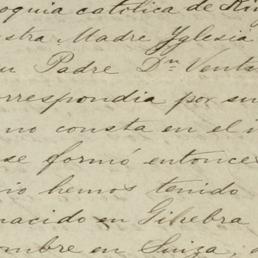 oquia catolica de
stra Madre Yglesia
u Padre Dn Ventu
orrespondia por su
no consta en el i
se formó entonce
io hemos tenido
nacido en Gihebra
ombre en Suiza,